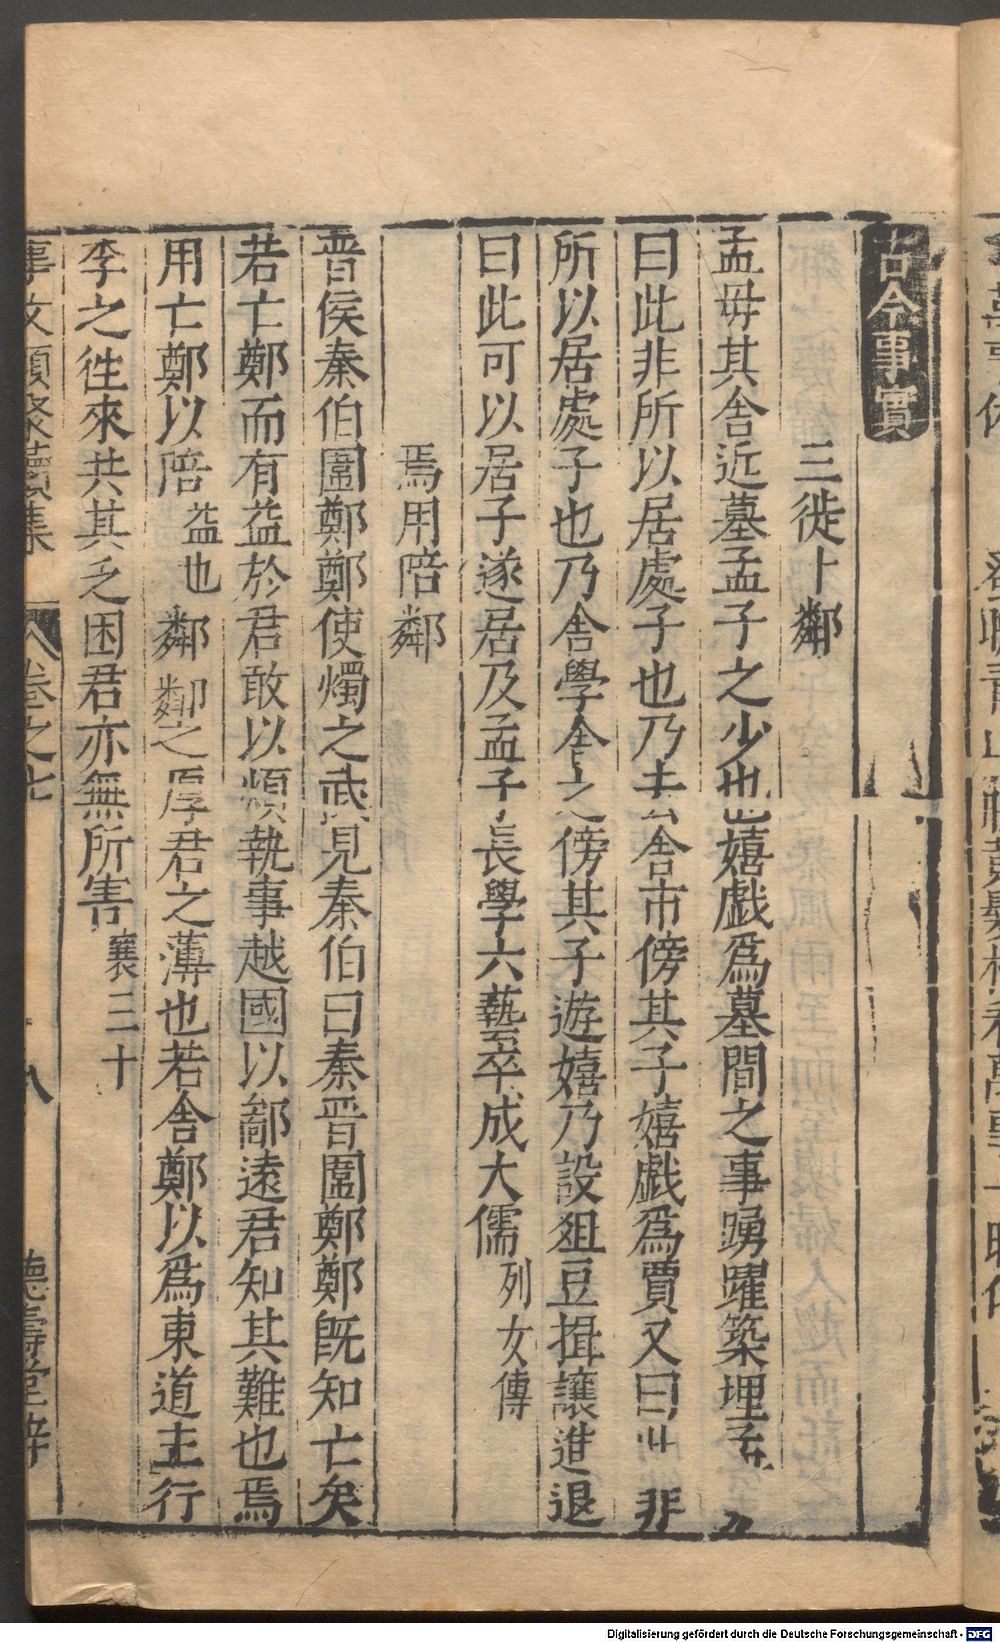 古今事實
三徙卜鄰
孟毋其舍近墓孟子之少也嬉戯爲墓間之事踴躍築埋孟
曰此非所以居處子也乃去舍市傍其子嬉戯爲賈又曰此非
所以居處子也乃舍學舍之傍其子遊嬉乃設俎豆揖讓進退
曰此可以居子遂居及孟子長學六藝卒成大儒列女傳
焉用陪鄰
晋侯秦伯圍鄭鄭使燭之武見秦伯曰秦晋圍鄭鄭旣知亡矣
若亡鄭而有益於君敢以煩執事越國以鄙遠君知其難也焉
用亡鄭以陪益也鄰鄰之厚君之薄也若舍鄭以爲東道主行
李之徃來共其乏困君亦無所害襄三十
事文類聚續集 卷之七 十八 德壽堂梓
Digitalisierung gefördert durch die Deutsche Forschungsgemeinschaft - DFG